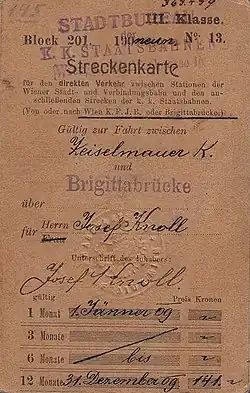 145
STADTBU
III. Klasse.
Block 201 190neun Nº 13.
K. K. STAATSBAHNEN
Streckenkarte
für den direkten Verkehr zwischen Stationen der
Wiener Stadt- und Verbindungsbahn und den an-
schließenden Strecken der k. k. Staatsbahnen
(Von oder nach Wien K. F. J. B. oder Brigittabrücke)
Gültig zur Fahrt zwischen
Zeiselmauer K.
und
Brigittabrücke
über
für Herrn Josef Knoll
Frau
Unterschrift des Inhabers:
Josef Knoll.
gültig Preis Kronen
1 Monat 1. Jänner 09
3 Monate
6 Monate bis
12 Monate 31. Dezember 09 141.